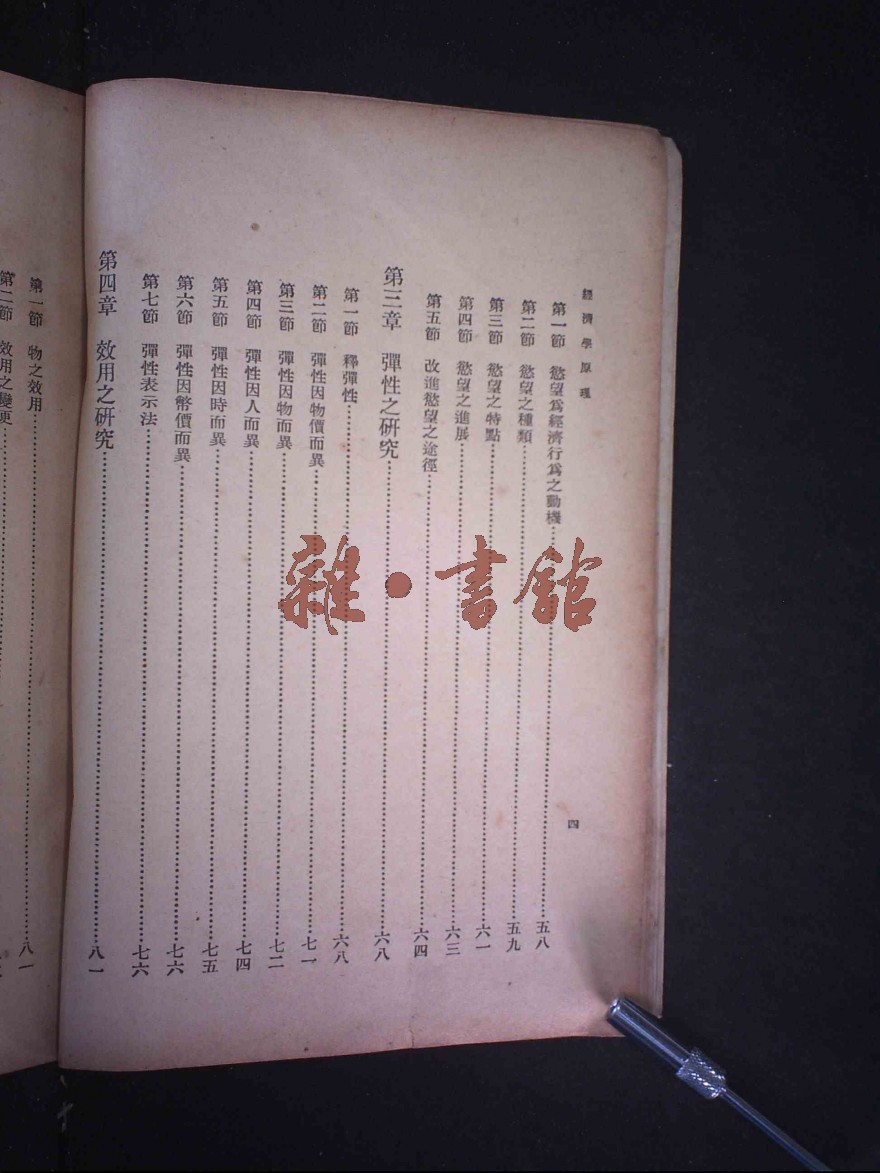 經濟學原理
四
第一節 慾望爲經濟行爲之動機……五八
第二節 慾望之種類……五九
第三節 慾望之特點……六一
第四節 慾望之進展……六三
第五節 改進慾望之途徑……六四
第三章 彈性之研究……六八
第一節 釋彈性……六八
第二節 彈性因物價而異……七一
第三節 彈性因物而異……七二
第四節 彈性因人而異……七四
第五節 彈性因時而異……七五
第六節 彈性因幣價而異……七六
第七節 彈性表示法……七六
第四章 效用之研究……八一
第一節 物之效用……八一
第二節 效用之變更……
雜·書館